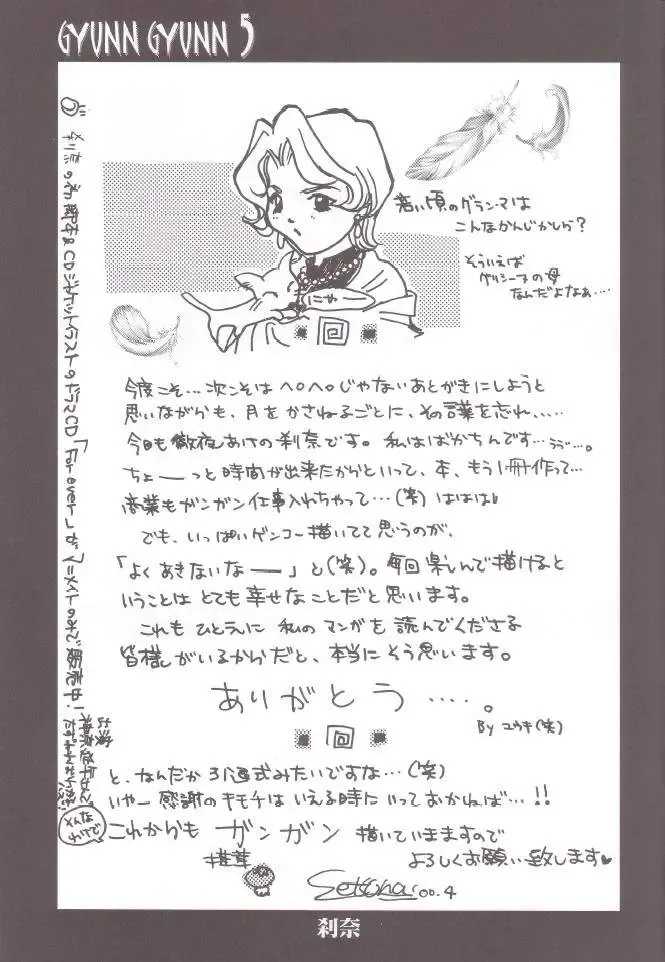 GYUNN GYUNN 5
若い頃のグランマは
こんなかんじかしら?
そういえば
グリシーヌの母
なんだよなぁ‥‥
にゃ
今度こそ…次こそはヘロヘロじゃないあとがきにしようと
思いながらも、月をかさねるごとに、その言葉を忘れ、‥‥
今日も徹夜あけの刹奈です。私はばかちんです…ううっ…。
ちょーっと時間が出来たからといって、本、もう1冊作って…
商業もガンガン仕事入れちゃって…(笑)ははは
でも、いっぱいゲンコー描いてて思うのが、
「よくあきないなー」と(笑)。毎回楽しんで描けると
いうことはとても幸せなことだと思います。
これもひとえに私のマンガを読んでくださる
皆様がいるからだと、本当にそう思います。
ありがとう‥‥。
By ユウキ(笑)
と、なんだか引退式みたいですな…(笑)
いやー感謝のキモチはいえる時にいっておかねば…!!
これからもガンガン描いていきますので
よろしくお願い致します♥
Setuna 00.4
刹奈の初脚本&CDジャケットイラストのドラマCD「Forever…」がアニメイトのみで販売中!
そんな
わけで
刹奈